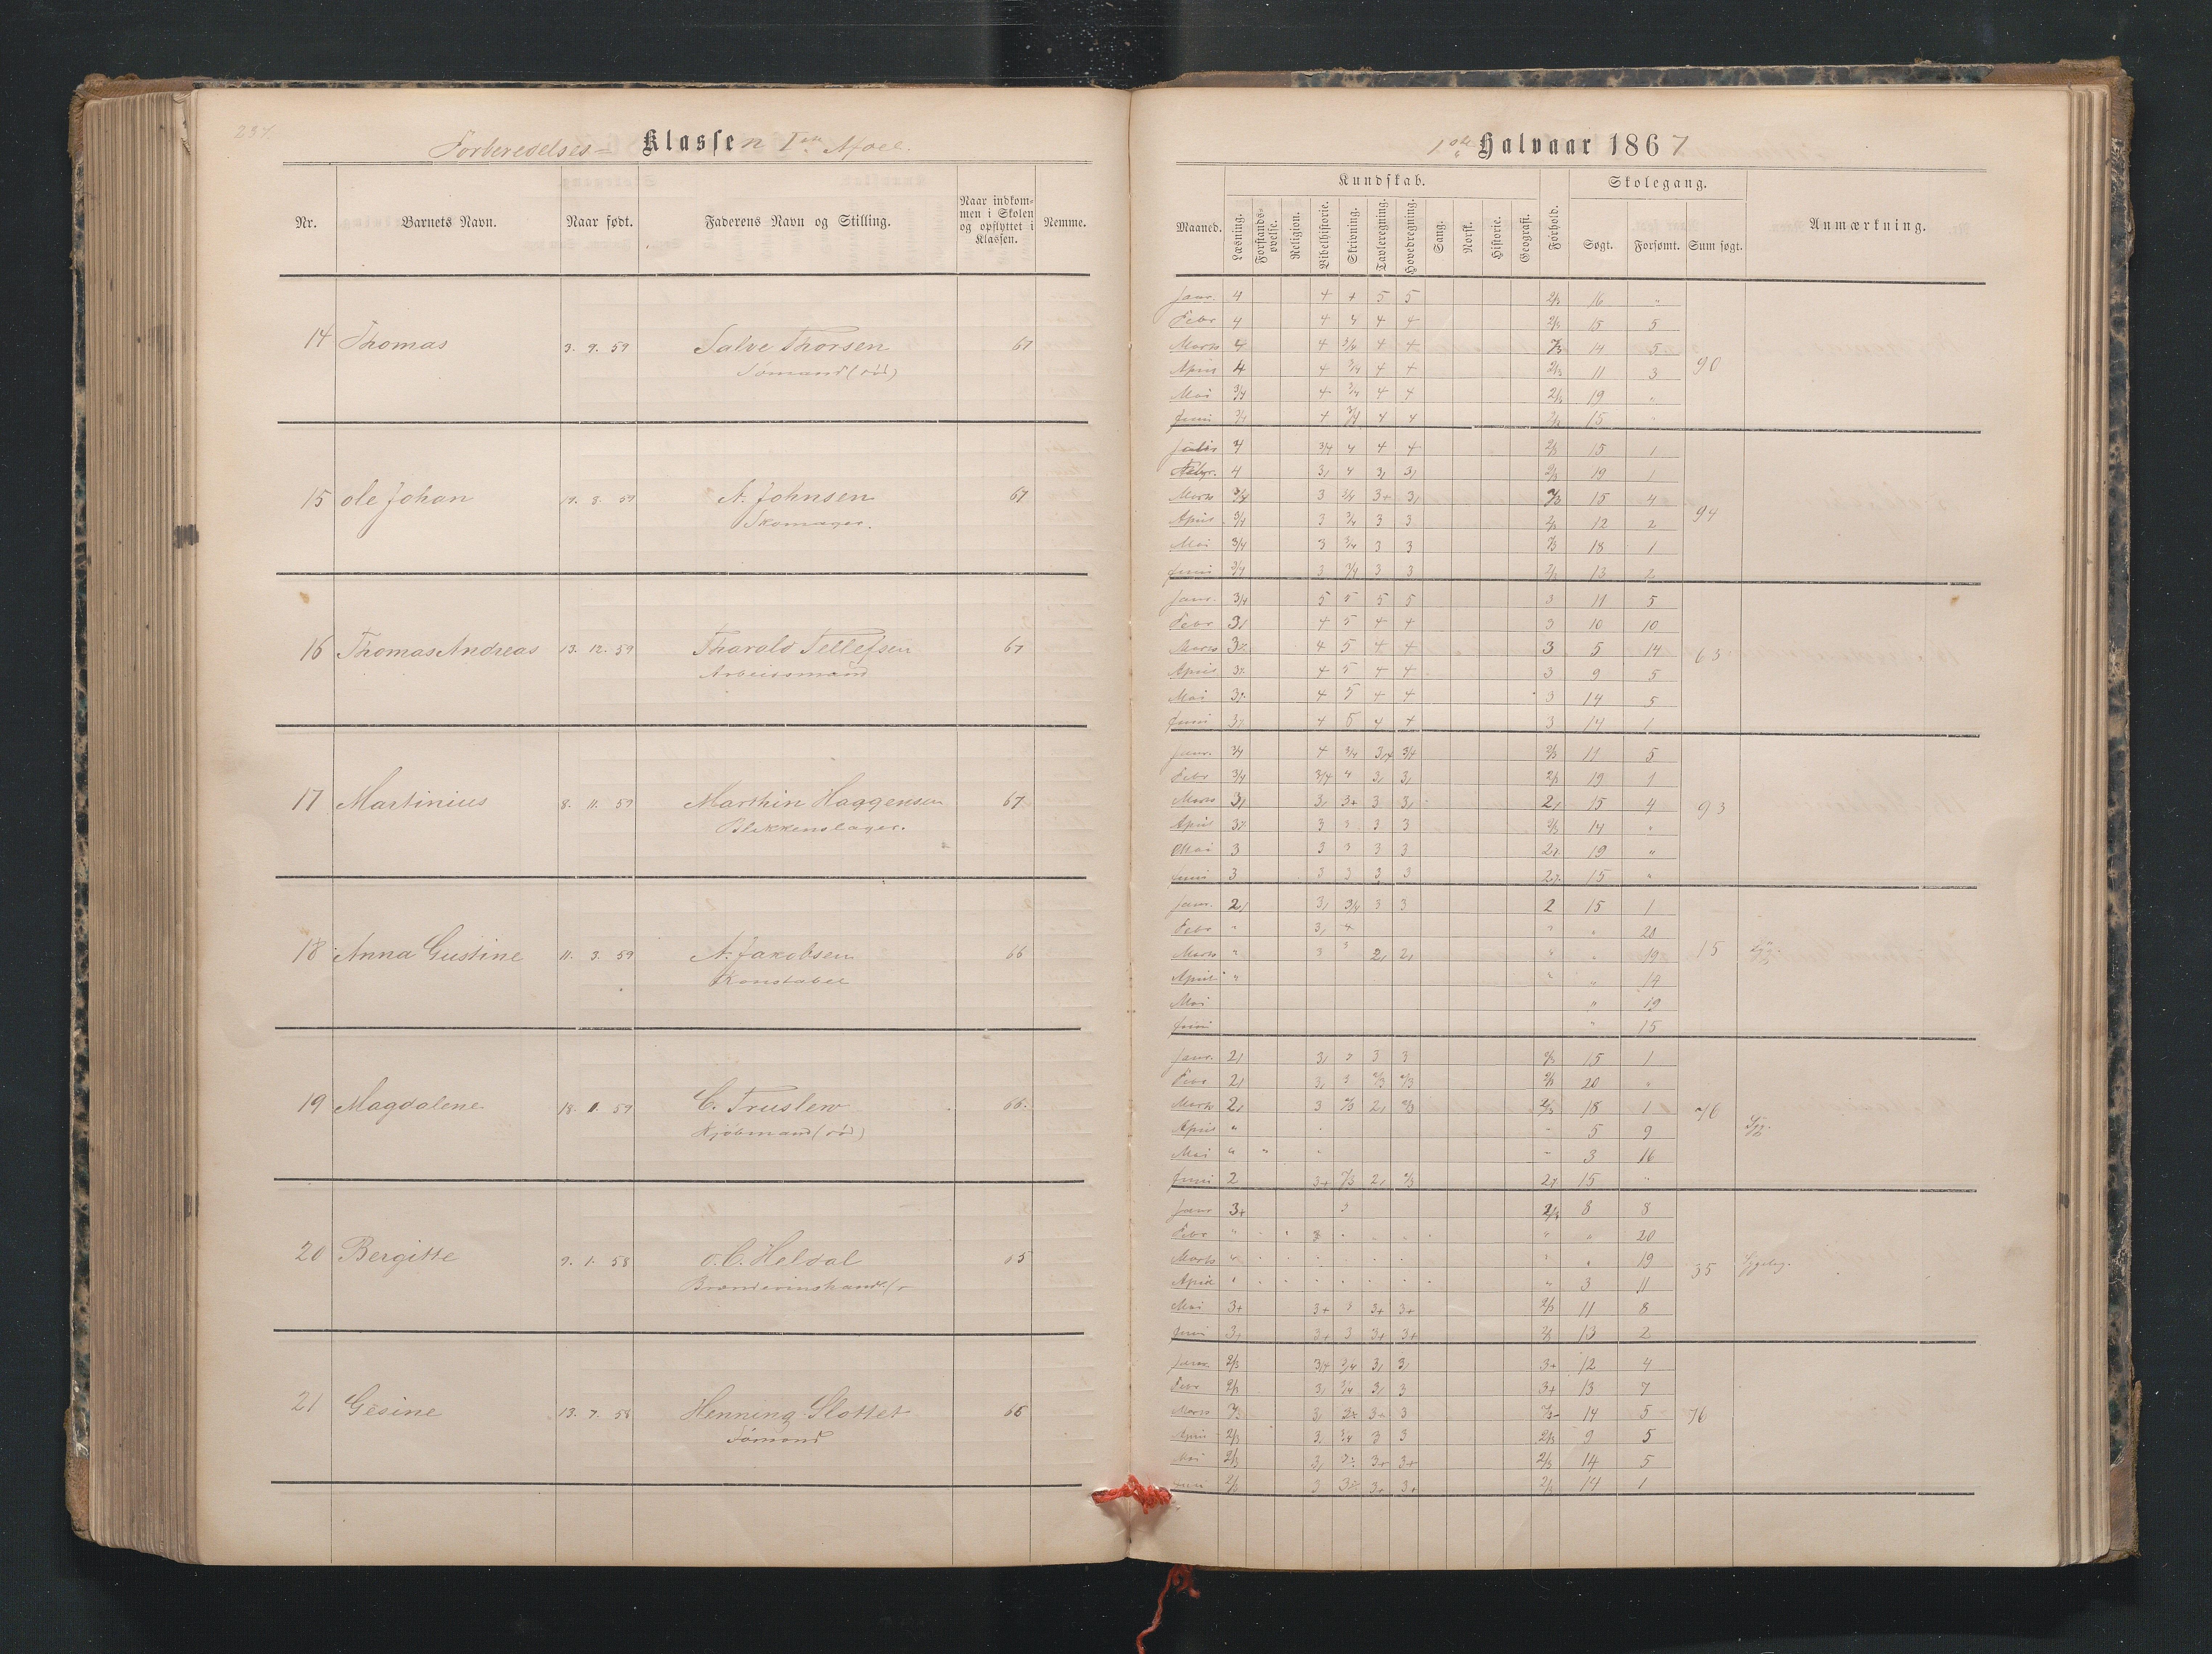 Forberedelses- Klassen I
1ste Halvaar 1867
Nr. Barnets Navn. Naar født. Faderens Navn og Stilling. Naar indkommen i Skolen og opflyttet i Klassen. Nemme.
Kundskab. Skolegang.
Maaned. Læsning. Forstandsøvelse. Religion. Bibelhistorie. Skrivning. Tavleregning. Hovedregning. Sang. Norsk. Historie. Geografi. Forhold. Søgt. Forsømt. Sum søgt. Anmærkning.
14 Thomas 3. 9. 59 Salve Thorsen 67
Sømand (død)
Janr. 4 4 4 5 5 2/3 16 "
Febr 4 4 4 4 4 2/3 15 5
Marts 4 4 3/4 4 4 2/3 14 5
April 4 4 3/4 4 4 2/3 11 3 90
Mai 3/4 4 3/4 4 4 2/3 19 "
Juni 3/4 4 3/4 4 4 2/3 15 "
15 Ole Johan 19. 8. 59 A. Johnsen 67
Skomager.
4 3/4 4 4 4 2/3 15 1
Febr. 4 3, 4 3, 3, 2/3 19 1
Marts 3/4 3 3/4 3+ 3, 2/3 15 4
April 3/4 3 3/4 3 3 2/3 12 2 94
Mai 3/4 3 3/4 3 3 2/3 18 1
Juni 3/4 3 3/4 3 3 2/3 13 2
16 Thomas Andreas 13. 12. 59 Tharald Tellefsen 67
Arbeidsmand
Janr. 3/4 5 5 5 5 3 11 5
Febr 3, 4 5 4 4 3 10 10
Marts 3 4 5 4 4 3 5 14 63
April 3 4 5 4 4 3 9 5
Mai 3 4 5 4 4 3 14 5
Juni 3 4 5 4 4 3 14 1
17 Martinius 8. 11. 59 Marthin Haggensen 67
Blikkenslager.
Janr. 3/4 4 3/4 3/4 3/4 2/3 11 5
Febr 3/4 3/4 4 3, 3, 2/3 19 1
Marts 3, 3, 3+ 3 3, 2, 15 4 93
April 3 3 3 3 3 2/3 14 "
Mai 3 3 3 3 3 2 19 "
Juni 3 3 3 3 3 2 15 "
18 Anna Gustine 11. 3. 59 A. Jakobsen 66
Konstabel
Janr. 2, 3, 3/4 3 3 2 15 1
Febr " 3, 4 " " 20
Marts " 3 3 2, 2, " " 19 15
April " " " 14
Mai " 19
Juni " 15
19 Magdalene 18. 1. 59 C. Truslew 66.
Kjøbmand (død)
Janr. 2, 3, 3 3 3 2/3 15 1
Febr 2, 3, 3 2/3 2/3 2/3 20 "
Marts 2, 3 2/3 2, 2/3 2/3 18 1 76
April " " 5 9
Mai " " " " 3 16
Juni 2 3+ 2/3 2, 2/3 2 15 "
20 Bergitte 9. 1. 58 O. C. Heldal 65
Janr 3+ 3 2/3 8 8
Febr " " " 20
Marts " " " 19 35
April " " 3 11
Mai 3+ 3+ 3 3+ 3+ 2/3 11 8
Juni 3+ 3+ 3 3+ 3+ 2/3 13 2
21 Gesine 13. 7. 58 Henning Slottet 66
Sømand
Janr. 2/3 3/4 3/4 3, 3, 3+ 12 4
Febr 2/3 3, 3/4 3, 3 3+ 13 7
Marts 3, 3 14 5 76
April 2/3 3, 3/4 3 3 2/3 9 5
Mai 2/3 3, 3+ 3+ 2/3 14 5
Juni 2/3 3 3+ 3+ 2/3 14 1